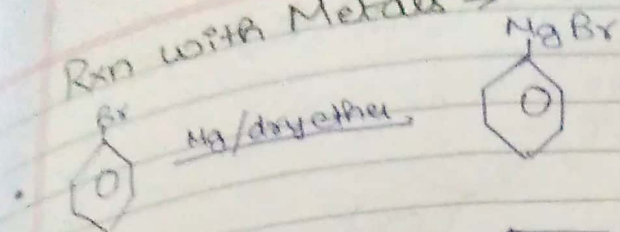 Rxn with Metals
MgBr
Br
Mg/dry ether,